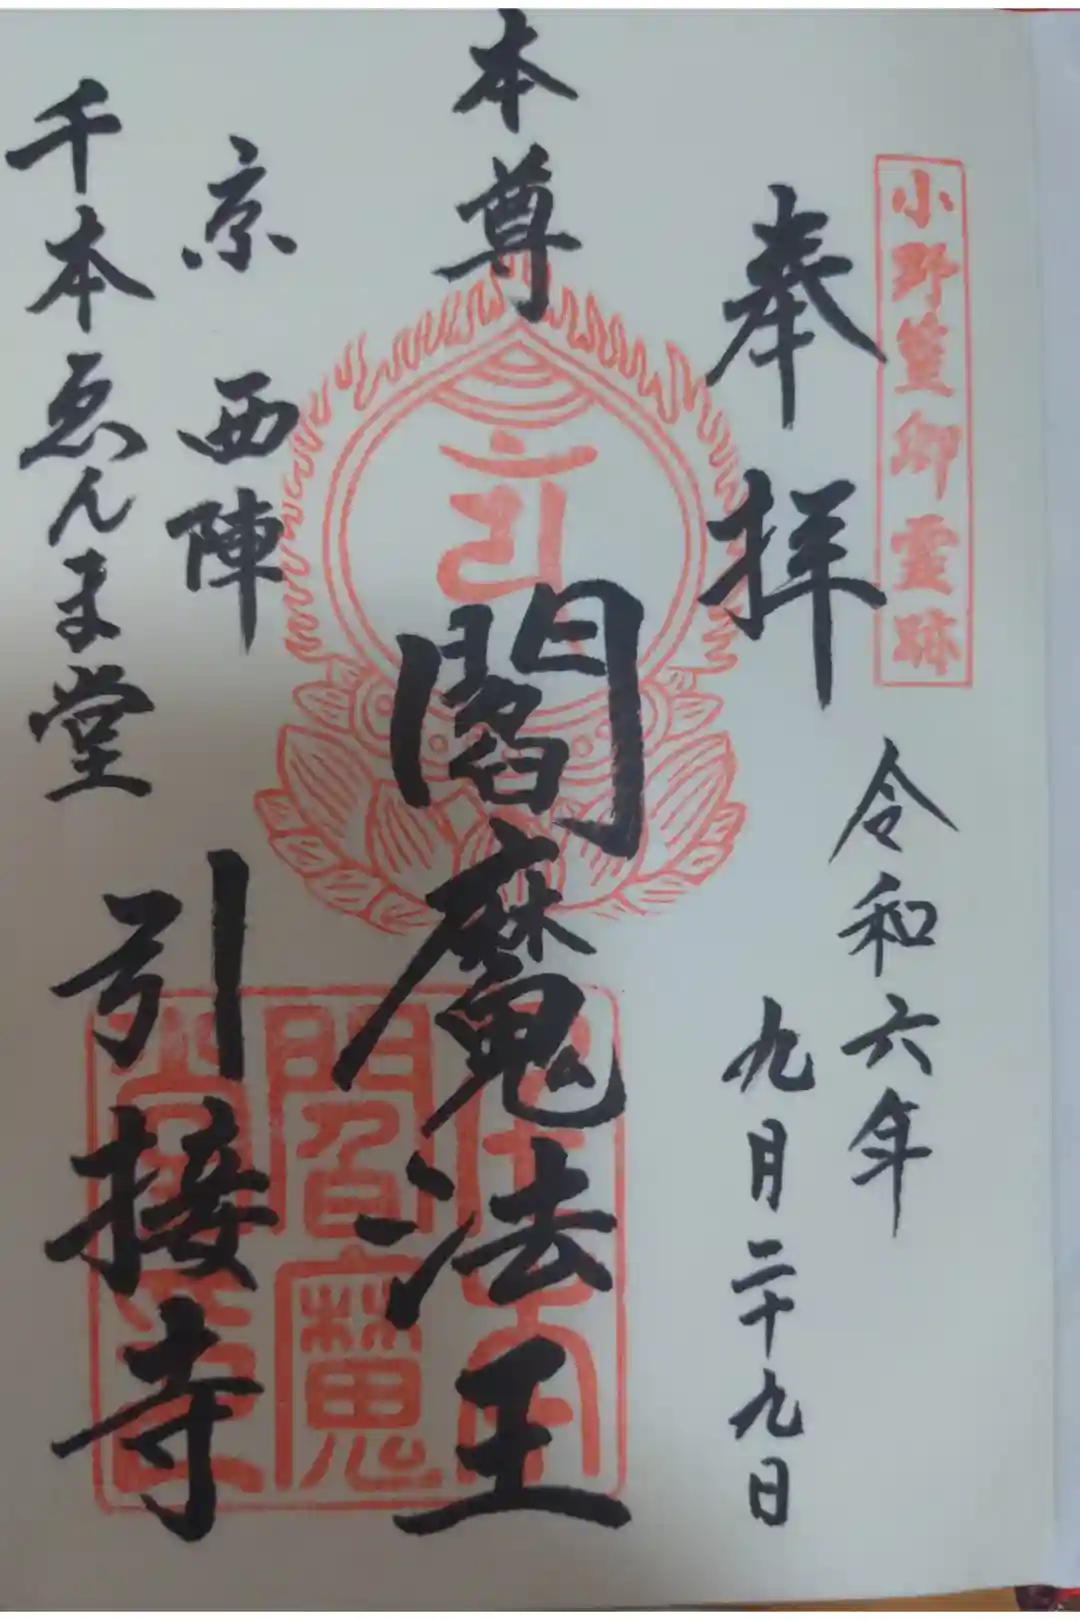 小野篁卿霊跡
奉拝
令和六年
九月二十九日
本尊
閻魔法王
京 西陣
千本ゑんま堂
引接寺
閻魔